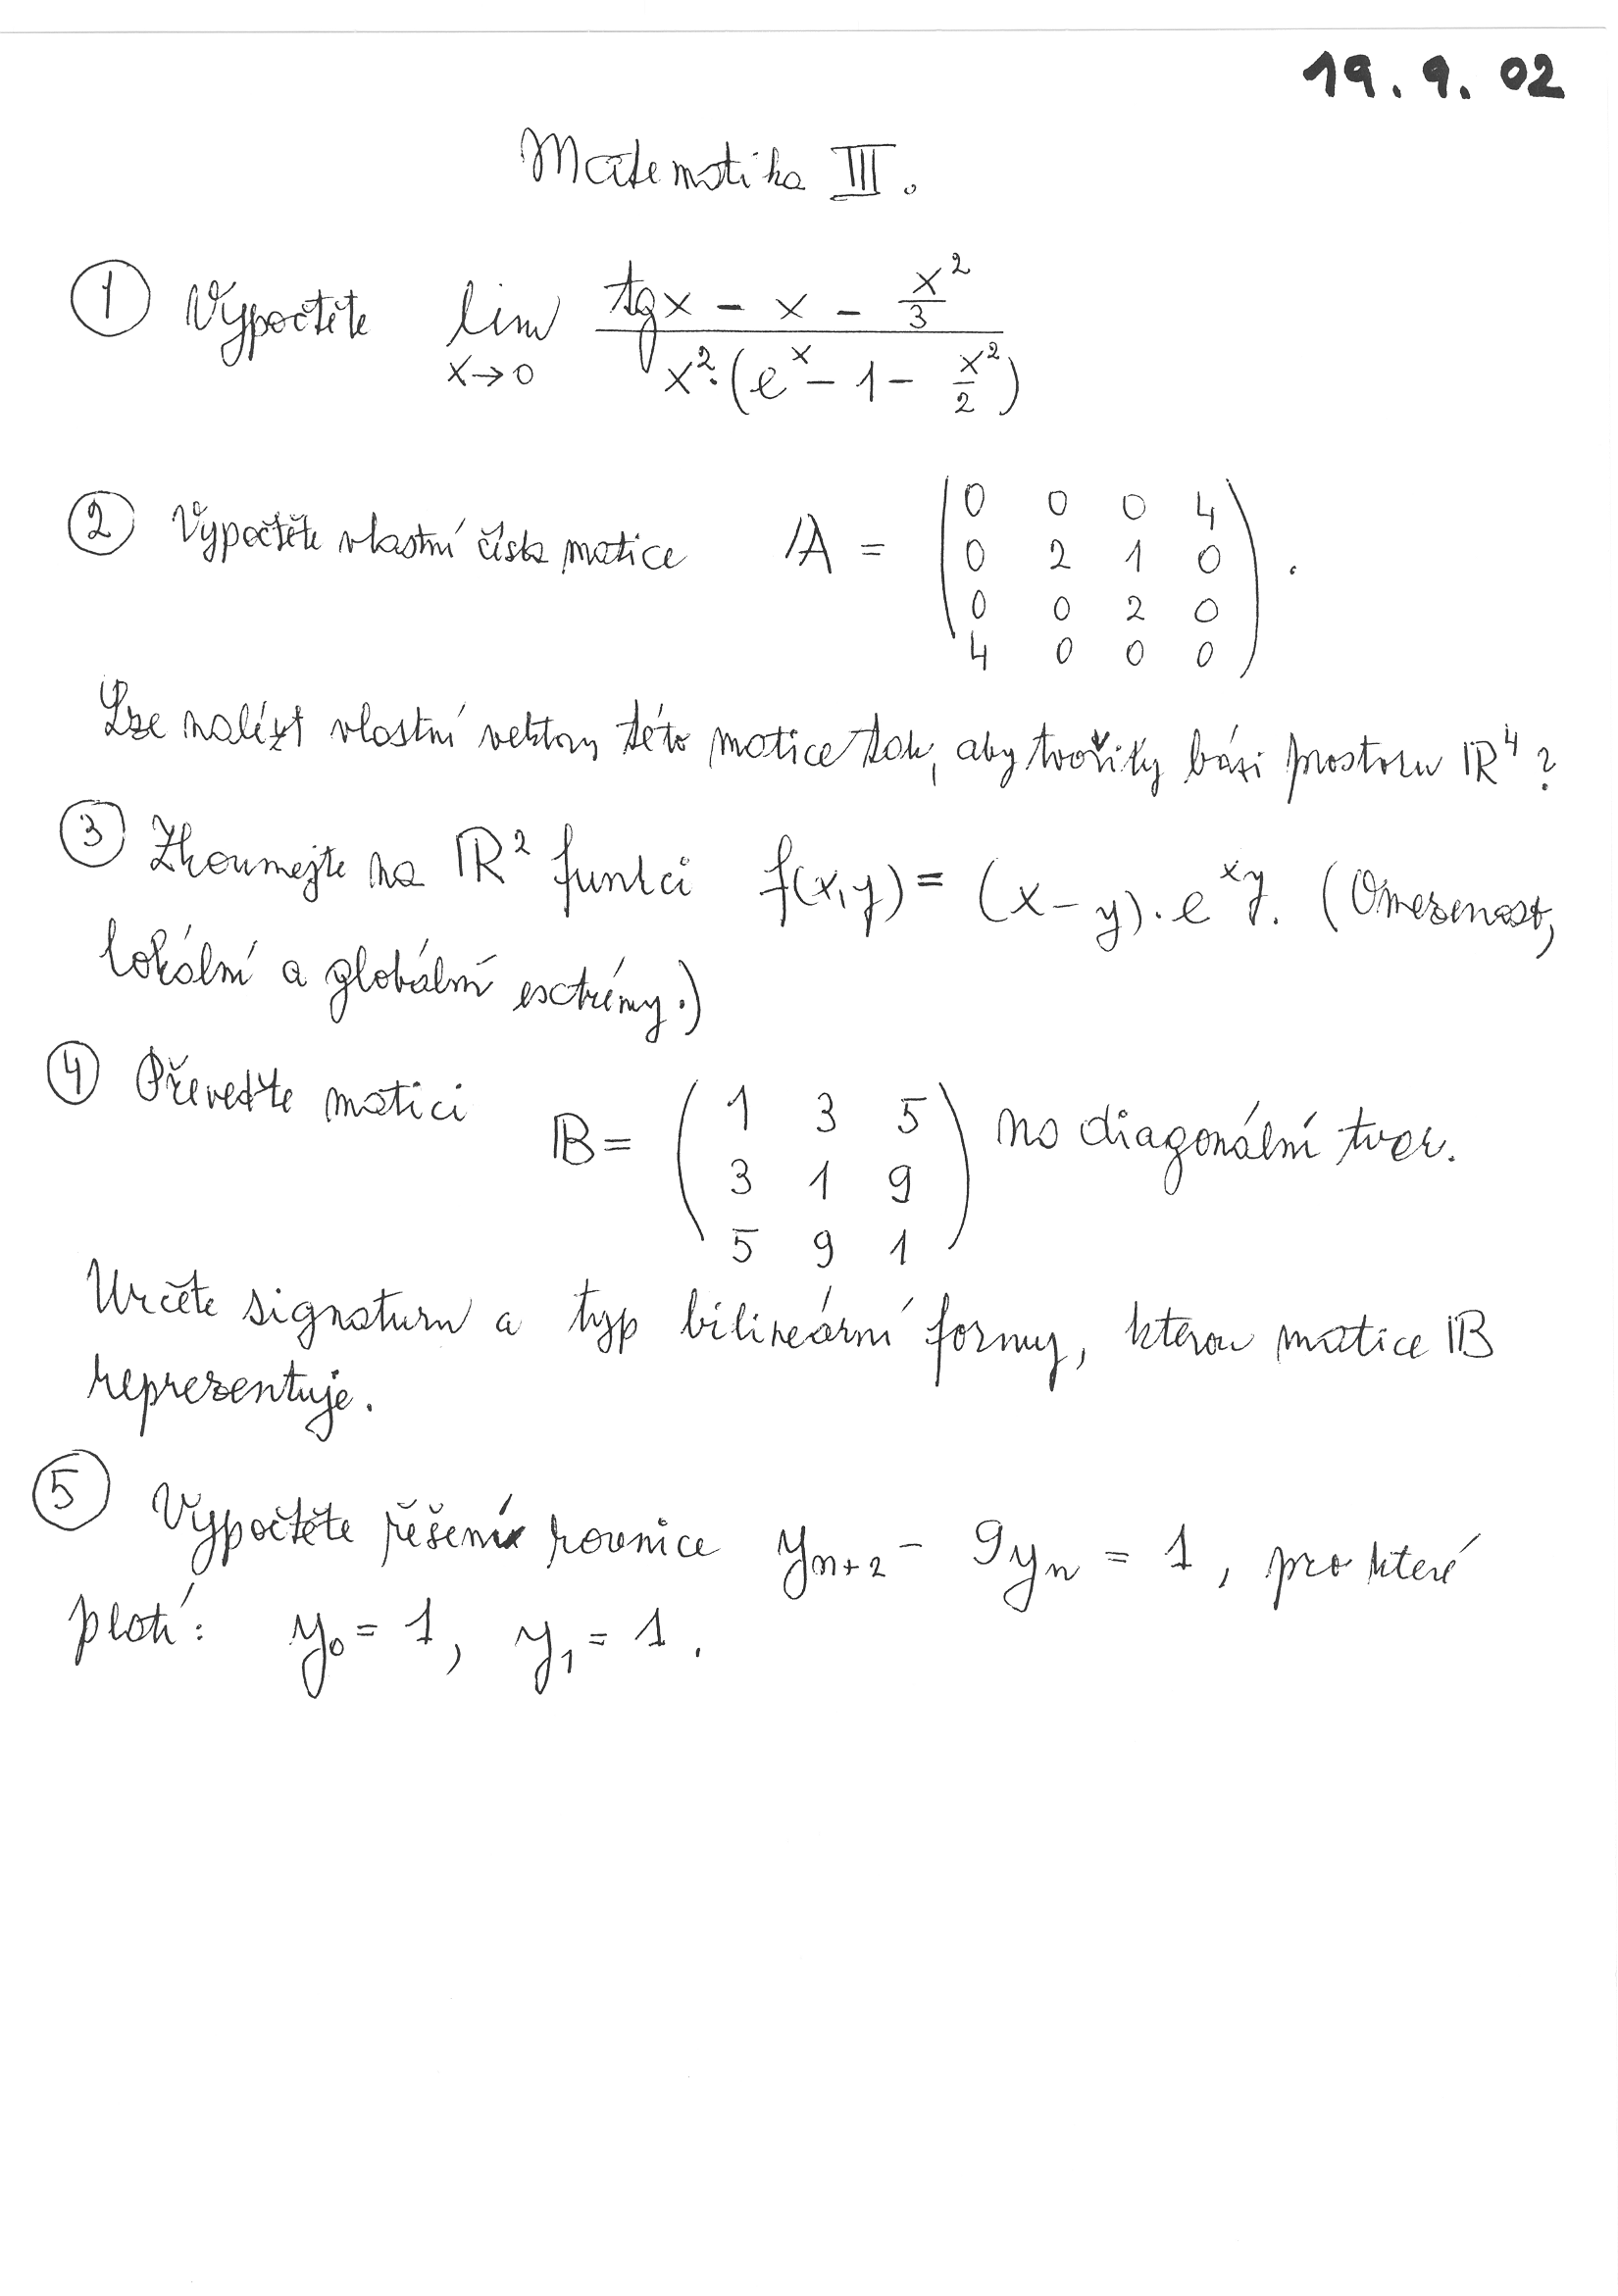 19. 9. 02
Matematika III.
① Vypočtěte lim_{x→0} (tg x - x - x²/3) / (x²·(e^x - 1 - x²/2))
② Vypočtěte vlastní čísla matice A = ( 0 0 0 4
0 2 1 0
0 0 2 0
4 0 0 0 ) .
Lze nalézt vlastní vektory této matice tak, aby tvořily bázi prostoru ℝ⁴ ?
③ Zkoumejte na ℝ² funkci f(x,y) = (x-y)·e^{xy}. (Omezenost,
lokální a globální extrémy.)
④ Převeďte matici B = ( 1 3 5
3 1 9
5 9 1 ) na diagonální tvar.
Určete signaturu a typ bilineární formy, kterou matice B
reprezentuje.
⑤ Vypočtěte řešení rovnice y_{n+2} - 9y_n = 1 , pro které
platí: y_0 = 1, y_1 = 1 .